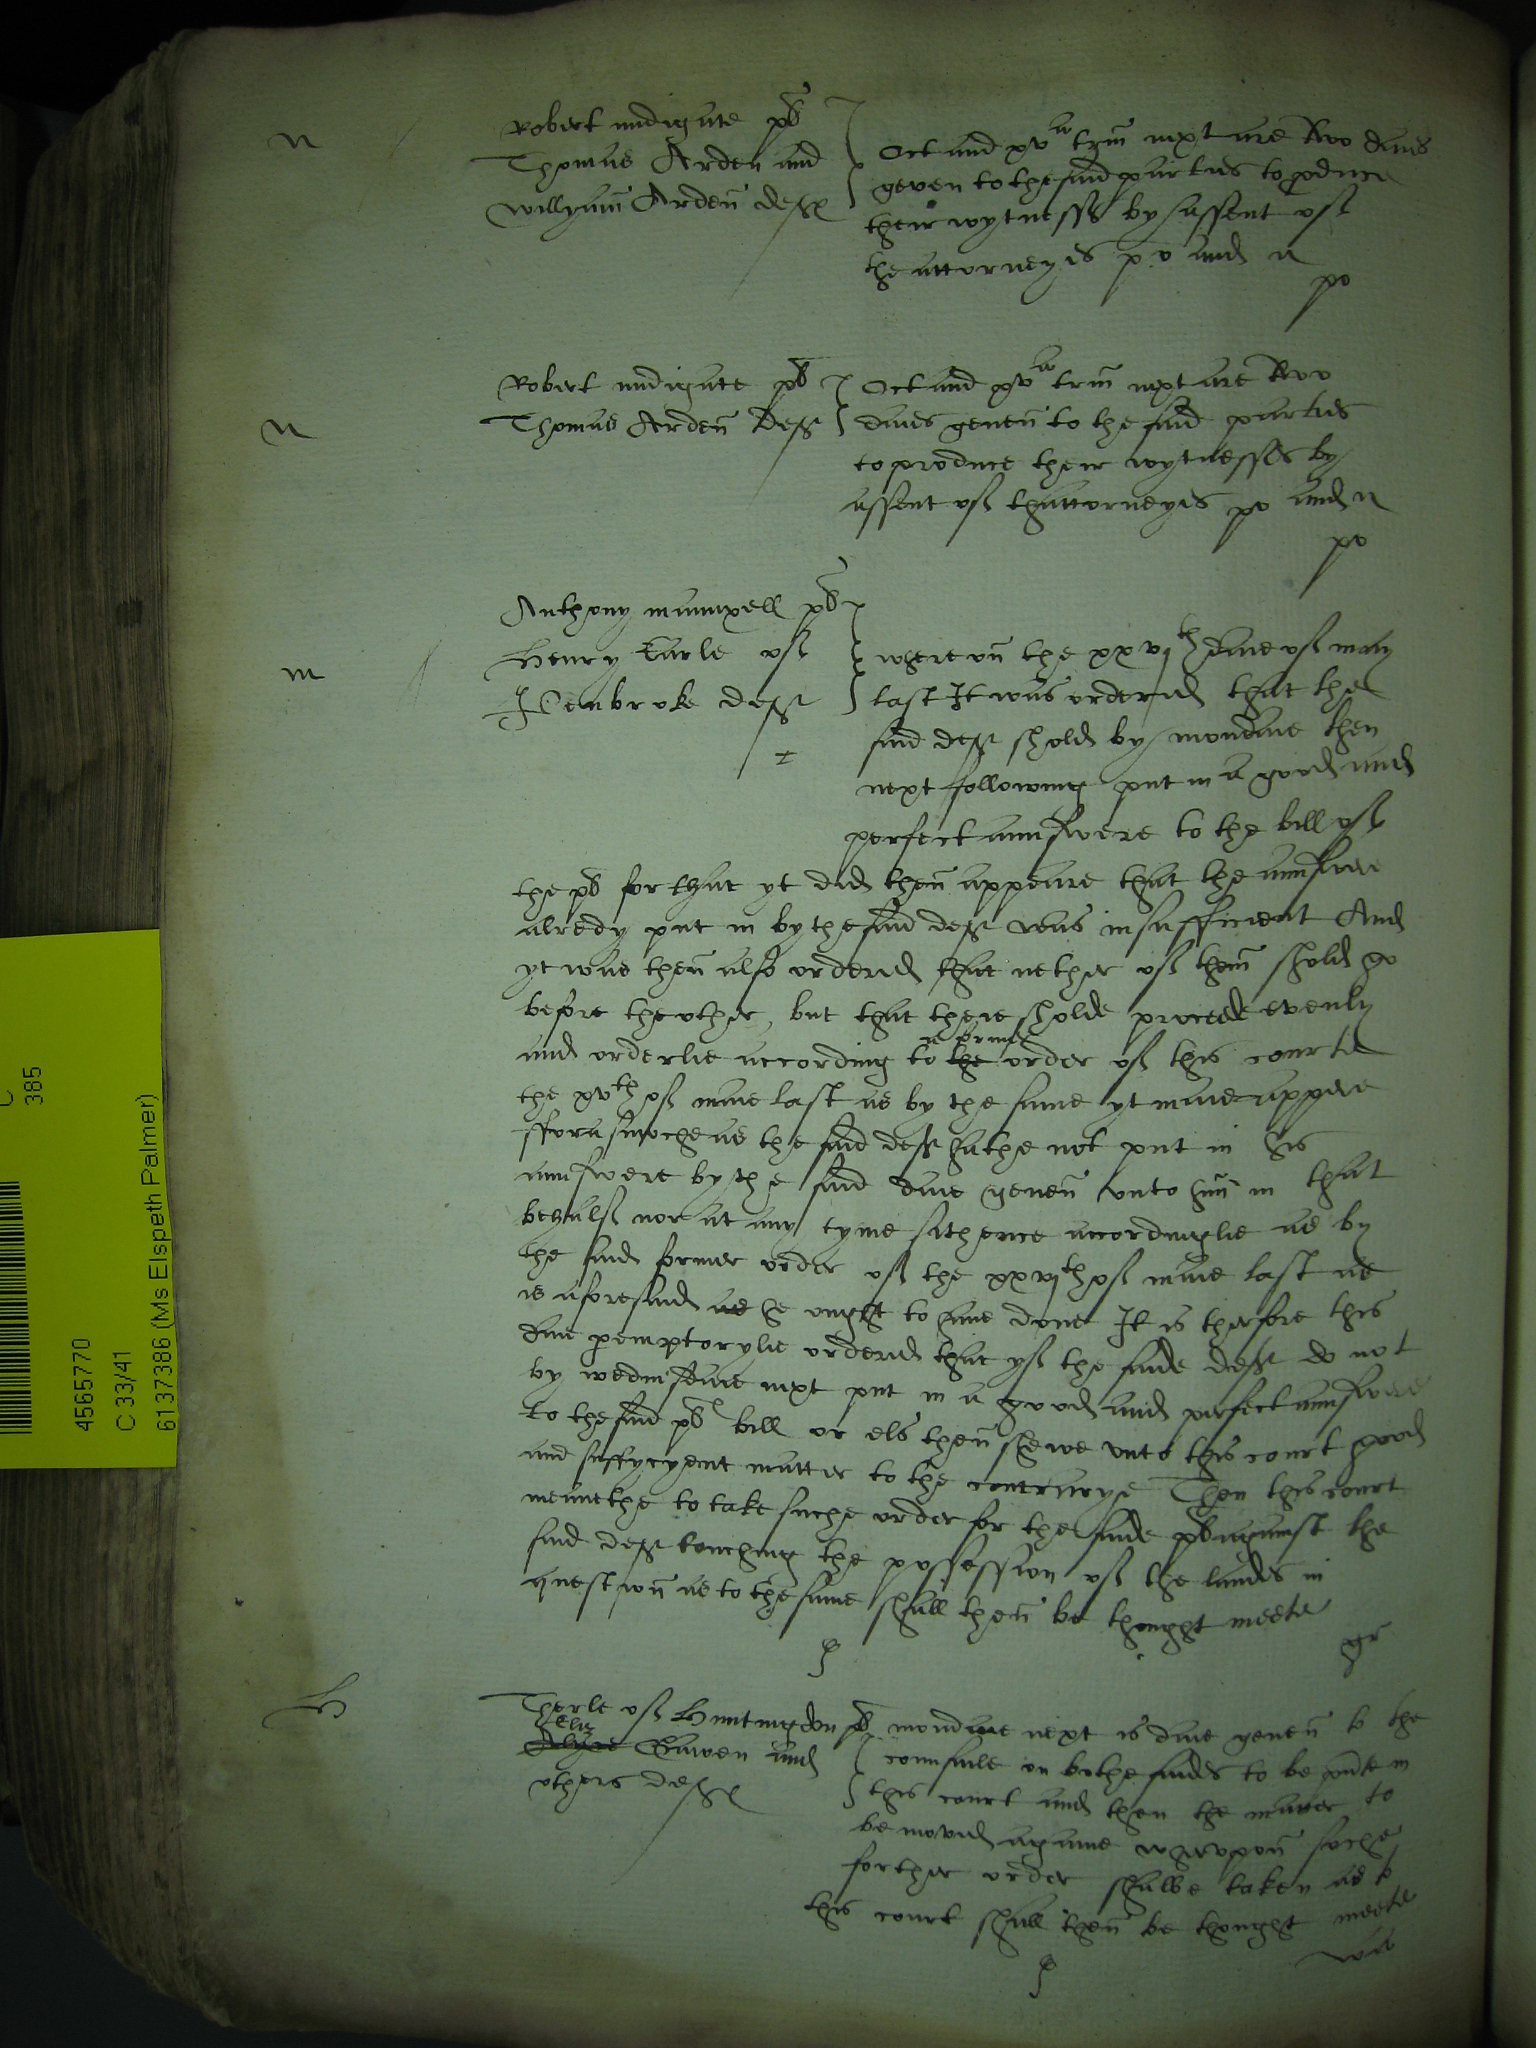 n
Robert nudigate pl
Thomas Arden and
Willyam Arden deff
Oct and xva trin next are two daies
geven to the said parties to produce
their wytnesses by assent of
the attorneyes po and n
po
n
Robert nudigate pl
Thomas Arden deff
Oct and xva trin next are two
daies geven to the said parties
to produce their wytnesses by
assent of thattorneyes po and n
po
m
Anthony maunxell pl
Henry Earle of
Penbroke deff
where on the xxvjth daie of maij
last It was ordered that the
said deff shold by mondaie then
next following put in a good and
perfect aunswere to the bill of
the pl for that yt did then appeare that the aunswere
alredy put in by the said deff was insufficient And
yt was then also ordered that nether of them shold go
before the other, but that there sholde procede evenly
and orderlie according to the former order of this courte
the xvth of maie last as by the same yt maie appere
fforasmoche as the said deff hathe not put in his
aunswere by the said daie geven unto him in that
behalf nor at any tyme sithence accordinglie as by
the said former order of the xxvjth of maie last as
is aforesaid as he ought to have done It is therfore this
daie peremptorylie ordered that yf the saide deff do not
by wednesdaie next put in a good and perfect aunswere
to the said pl bill or els then shewe unto this court good
and suffycyent matter to the contrarye Then this court
meanethe to take suche order for the saide pl against the
said deff touching the possession of the landes in
question as to the same shall then be thought meete
gr
H
Therle of Huntingdon pl
Eliz
Alyce Gawen and
others deff
mondaie next is daie geven to the
counsaile on bothe sides to be in
this court and then the matter to
be moved againe wherupon suche
forther order shalbe taken as to
this court shall then be thought meete
wa
C
385
4565770
C 33/41
6137386 (Ms Elspeth Palmer)